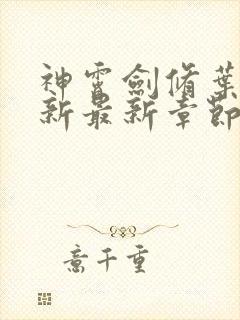 神霄劍脩葉
新最新章節
意千重